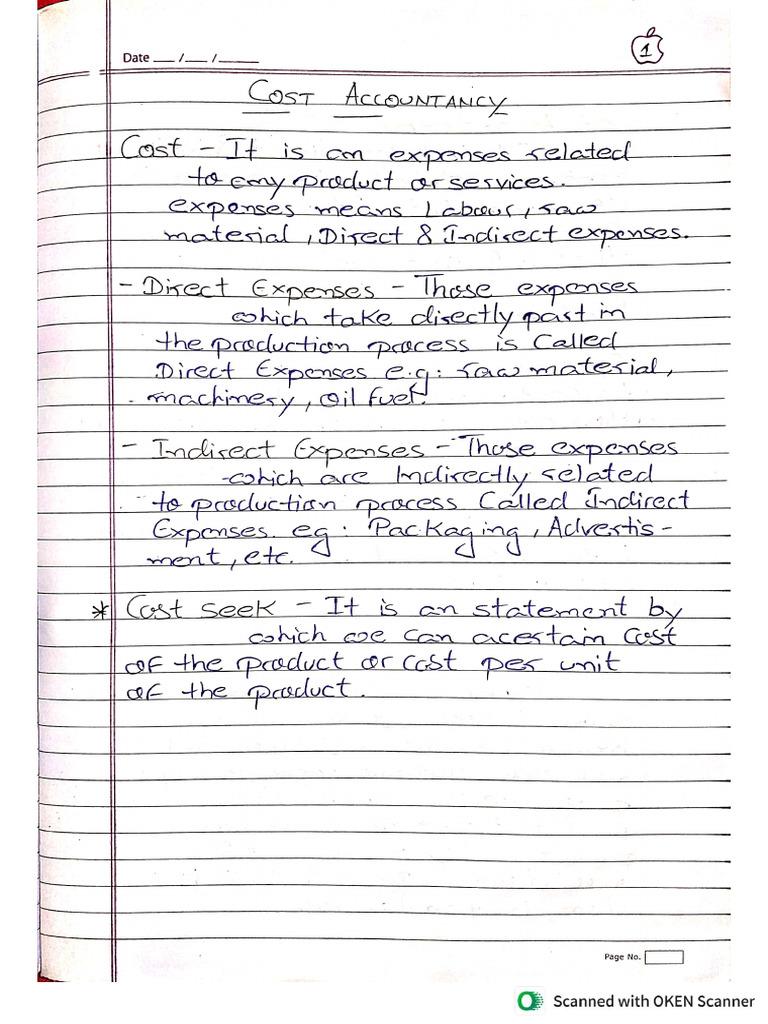 Date __ / __ / ____
1
COST ACCOUNTANCY
Cost - It is an expenses related
to any product or services.
expenses means Labour, raw
material, Direct & Indirect expenses.
- Direct Expenses - Those expenses
which take directly part in
the production process is Called
Direct Expenses e.g: raw material,
machinery, oil fuel.
- Indirect Expenses - Those expenses
which are Indirectly related
to production process Called Indirect
Expenses. eg: Packaging, Advertis-
ment, etc.
* Cost seek - It is an statement by
which we can acertain Cost
of the product or cost per unit
of the product.
Page No.
Scanned with OKEN Scanner